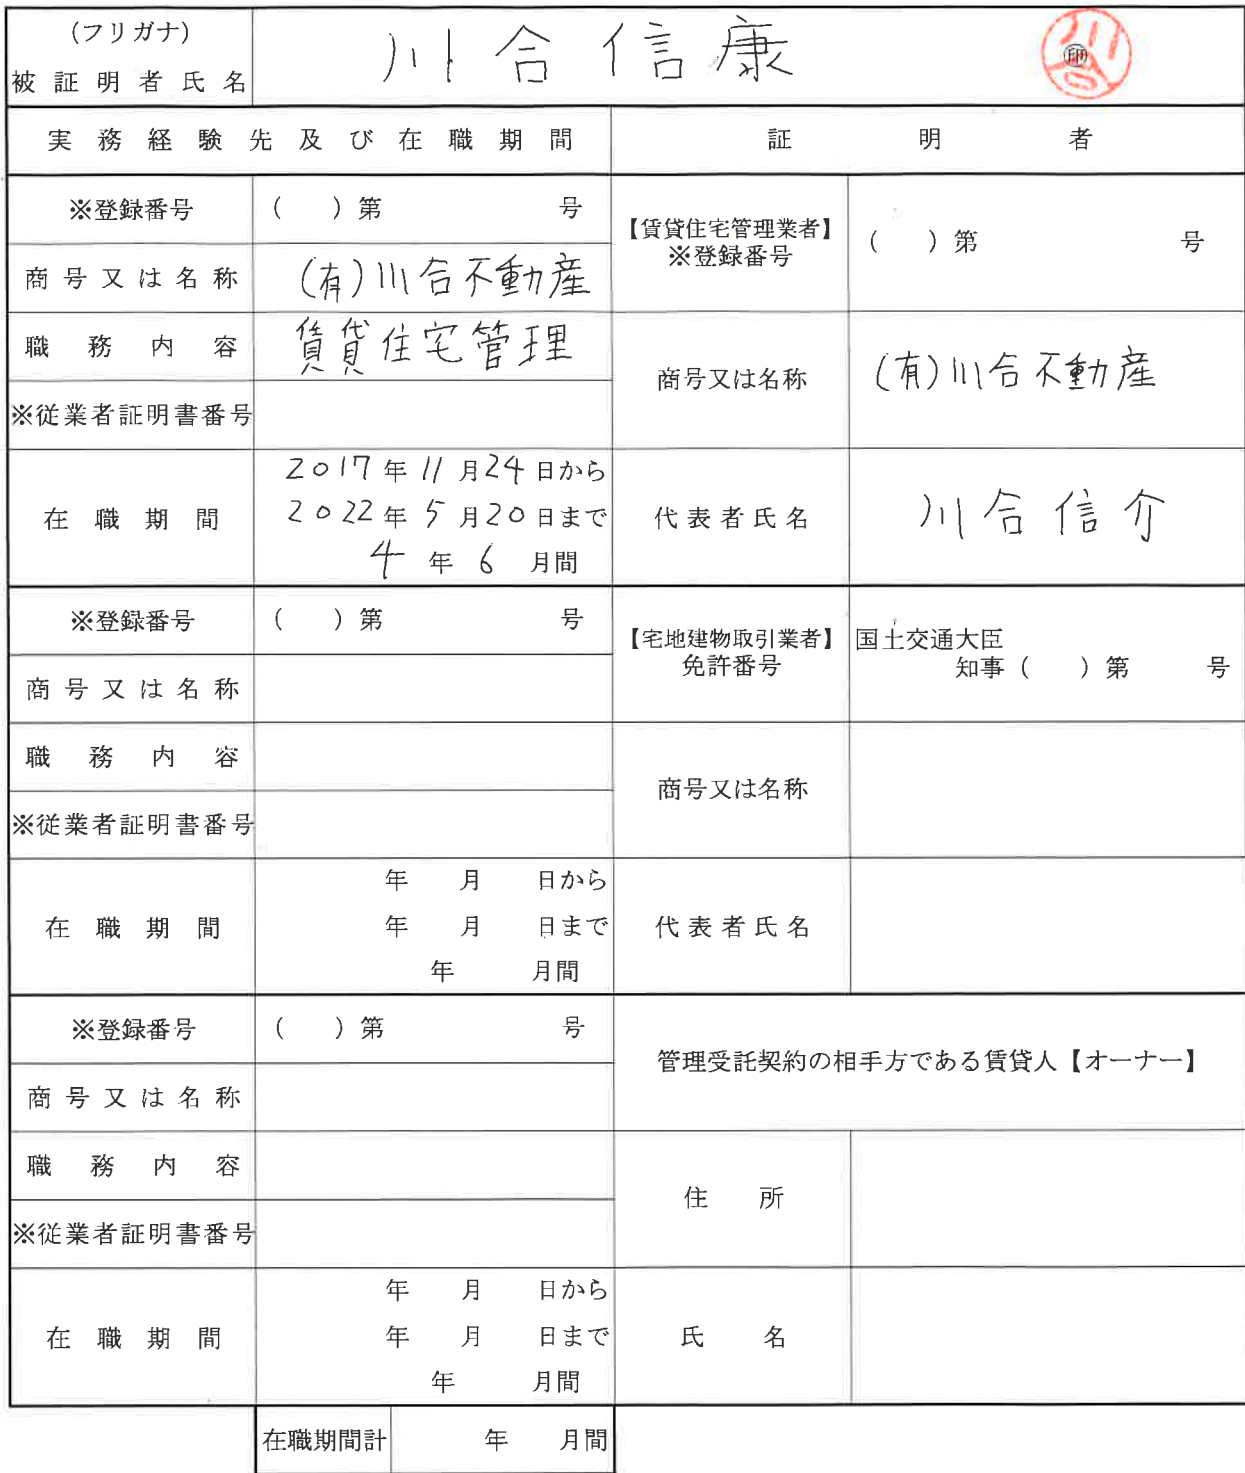 (フリガナ)
被証明者氏名 川合信康 ㊞ 川合
実務経験先及び在職期間 証明者
※登録番号 ( ) 第 号
商号又は名称 (有)川合不動産
職務内容 賃貸住宅管理
※従業者証明書番号
在職期間 2017年11月24日から
2022年5月20日まで
4年6月間
【賃貸住宅管理業者】
※登録番号 ( ) 第 号
商号又は名称 (有)川合不動産
代表者氏名 川合信介
※登録番号 ( ) 第 号
商号又は名称
職務内容
※従業者証明書番号
在職期間 年 月 日から
年 月 日まで
年 月間
【宅地建物取引業者】
免許番号
国土交通大臣
知事 ( ) 第 号
商号又は名称
代表者氏名
※登録番号 ( ) 第 号
商号又は名称
職務内容
※従業者証明書番号
在職期間 年 月 日から
年 月 日まで
年 月間
管理受託契約の相手方である賃貸人【オーナー】
住所
氏名
在職期間計 年 月間